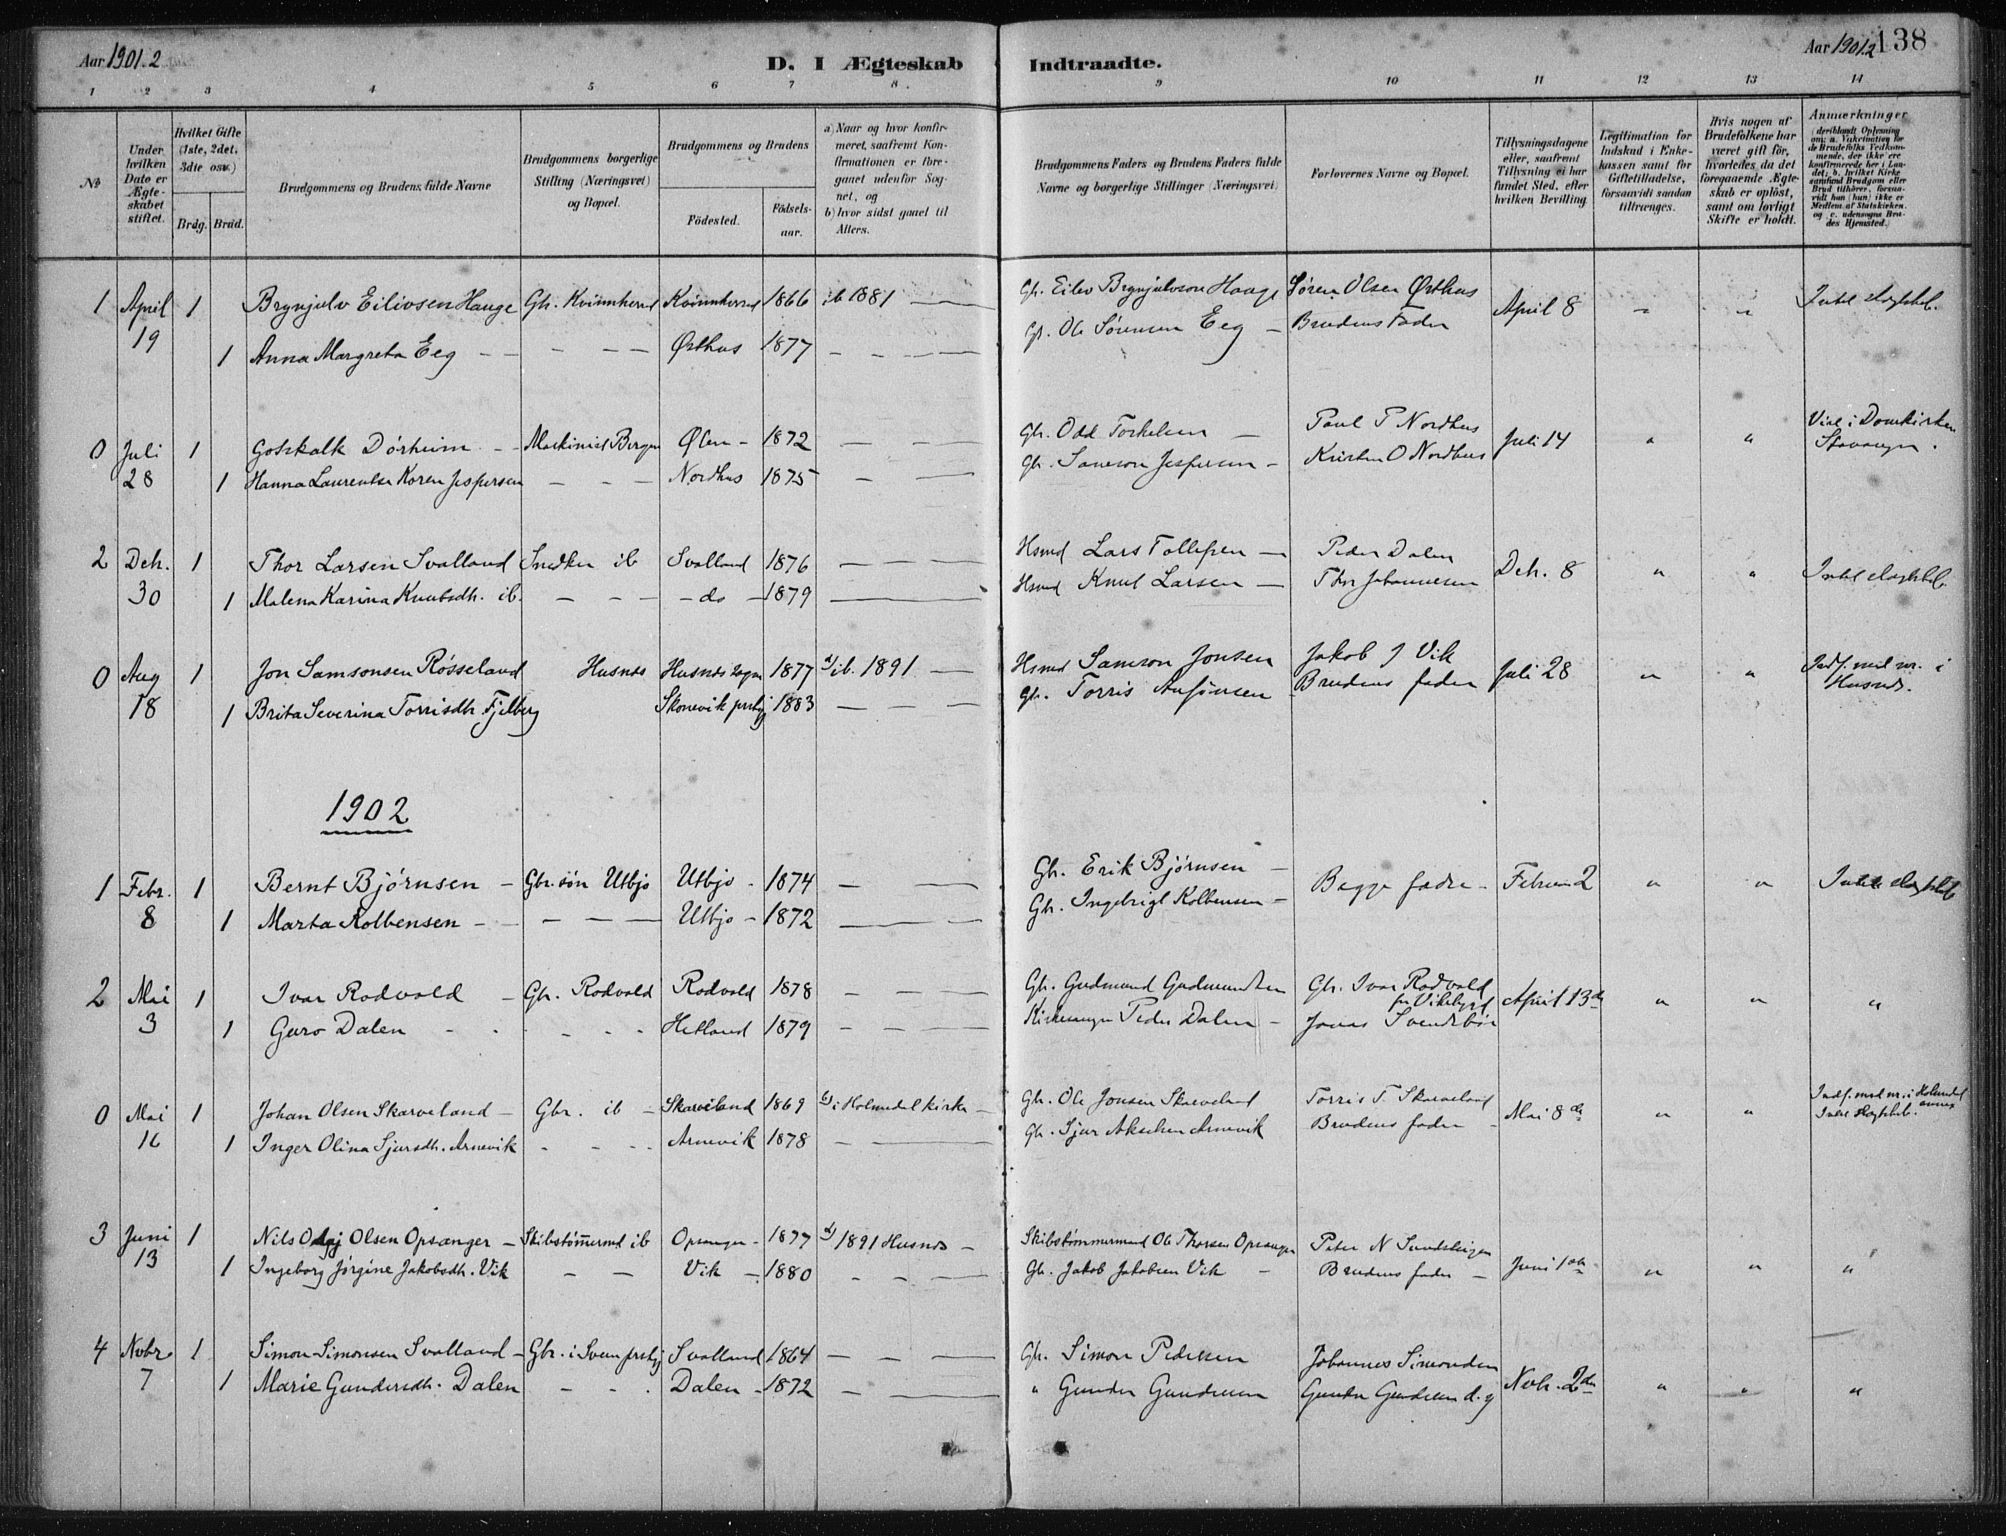 Aar 1901.2
D. I Ægteskab Indtraadte.
Aar 1901.2 138
1 2 3 4 5 6 7 8. 9 10 11 12 13 14
№
Under hvilken Dato er Ægteskabet stiftet.
Hvilket Gifte (1ste, 2det, 3die osv.)
Brdg. Brud.
Brudgommens og Brudens fulde Navne
Brudgommens borgerlige Stilling (Næringsvei) og Bopæl.
Brudgommens og Brudens
Födested. Födselsaar.
a) Naar og hvor konfirmeret, saafremt Konfirmationen er foregaaet udenfor Sognet, og
b) hvor sidst gaaet til Alters.
Brudgommens Faders og Brudens Faders fulde Navne og borgerlige Stillinger (Næringsvei)
Forlovernes Navne og Bopæl.
Tillysningsdagene eller, saafremt Tillysning ei har fundet Sted, efter hvilken Bevilling.
Legitimation for Indskud i Enkekassen samt for Giftetilladelse, forsaavidt saadan tiltrænges.
Hvis nogen af Brudefolkene har været gift för, hvorledes da det foregaaende Ægteskab er oplöst, samt om lovligt Skifte er holdt.
Anmærkninger
1 April 19 1 Brynjulv Eilivsen Hauge Gbr. Kvinnherred Kvinnherred 1866 ib 1881 Gbr. Eilev Brynjulvson Hauge Søren Olsen Ørthus April 8 " "
1 Anna Margreta Eeg Ørthus 1877 Gbr. Ole Sørensen Eeg Brudens Fader
0 Juli 28 1 Gotskalk Dørheim Maskinist Bergen Ølen 1872 Gbr. Odd Torkelsen Paul P Nordhus Juli 14 " " Viet i Domkirken Stavanger.
1 Hanna Laurentse Karen Jespersen Nordhus 1875 Gbr. Samson Jespersen Kristen O Nordhus
2 Dcb. 30 1 Thor Larsen Svalland Snedker ib Svalland 1876 Hsmd Lars Tollefsen Peder Dalen Dcb. 8 " "
1 Malena Karina Knutsdh. ib. do 1879 Hsmd Knut Larsen Thor Johannesen
0 Aug 18 1 Jon Samsonsen Røsseland Husnes Husnes sogn 1877 a) ib. 1891 Hsmd Samson Jonsen Jakob J Vik Juli 28 " " Indf. med nr. i Husnes.
1 Brita Severina Torrisdh. Fjelberg Skonevik prstgj 1883 Gbr. Torris Brudens fader
1902
1 Febr. 8 1 Bernt Bjørnsen Gbr. søn Utbjo Utbjo 1874 Gbr. Erik Bjørnsen Begges fædre Februar 2 " "
1 Marta Kolbensen Utbjo 1872 Gbr. Ingebrigt Kolbensen
2 Mai 3 1 Ivar Rodvold Gbr. Rodvold Rodvold 1878 Gbr. Gudmund Gudmundsen Gbr. Ivar Rodvold April 13de " " "
1 Guro Dalen Hetland 1879 Kirkesanger Peder Dalen Jonas Svendsbøe
0 Mai 16 1 Johan Olsen Skarveland Gbr. ib Skarveland 1869 b) i Holmedal kirke Gbr. Ole Jonsen Skarveland Torris T. Skarveland Mai 8de " " Indf. med nr. i Holmedal annex
1 Inger Olina Sjursdh. Arnevik Arnevik 1878 Gbr. Sjur Akselsen Arnevik Brudens fader
3 Juni 13 1 Nils Olaj Olsen Opsanger Skibstømmermd ib Opsanger 1877 a) 1891 Husnes Skibstømmermand Ole Thorsen Opsanger Peter N Juni 1ste " " "
1 Ingeborg Jørgine Jakobsdh. Vik Vik 1880 Gbr. Jakob Jakobsen Vik Brudens fader
4 Novbr 7 1 Simon Simonsen Svalland Gbr. i Sveen prstgj Svalland 1864 Gbr. Simon Pedersen Johannes Simonsen Nvbr. 2den " " "
1 Marie Gundersdh. Dalen Dalen 1872 " Gunder Gundersen Gunder Gundersen d. y